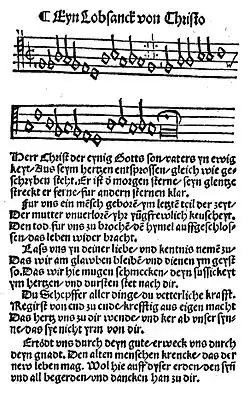 Eyn Lobsanck von Christo
Herr Christ der eynig Gotts son, vaters yn ewig
keyt, Aus seym hertzen entsprossen, gleich wie ge-
schryben steht, Er ist d morgen sterne, seyn glentze
streckt er ferne, fur andern sternen klar.
Fur uns ein mēsch geborē, ym letztē teil der zeyt,
Der mutter unverlorē, yhr yūgfrewlich keuscheyt,
Den tod fur uns zu brochē, dē hymel auffgeschlos-
sen, das leben wider bracht.
Lass uns yn deiner liebe, und kentnis nemē zu,
Das wir am glawben bleibē, und dienen ym geyst
so, Das wir hie mugen schmecken, deyn sussickeyt
ym hertzen, und dursten stet nach dir.
Du Schepffer aller dinge, du vetterliche krafft,
Regirst von end zu ende, krefftig aus eigen macht
Das hertz uns zu dir wende, und ker ab unser syn-
ne, das sye nicht yran von dir.
Ertödt uns durch deyn gute, erweck uns durch
deyn gnad, Den alten menschen krencke, das der
new leben mag, Wol hie auff dyser erden, den syn
und all begerden, und dancken han zu dir.